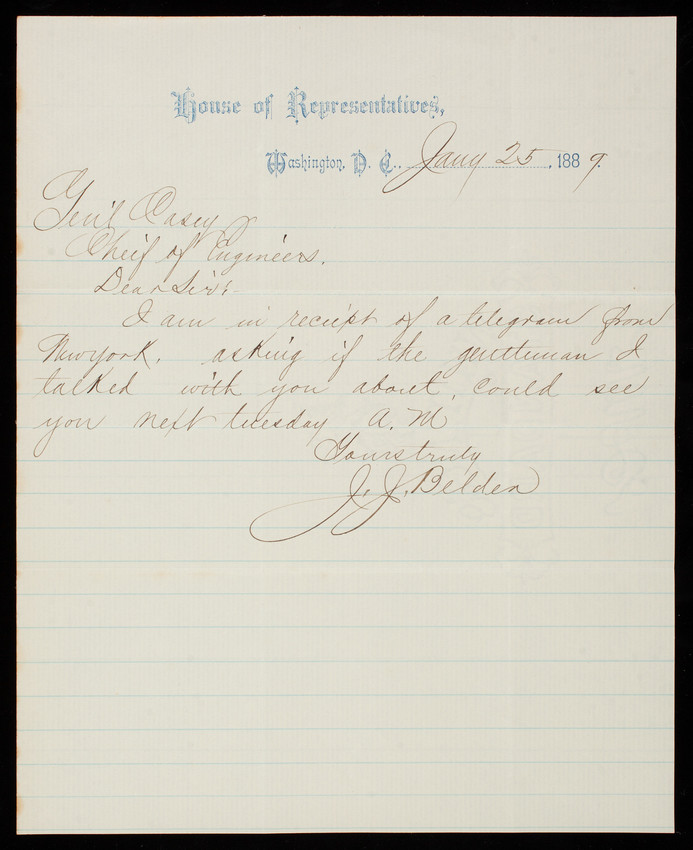 House of Representatives,
Washington, D. C., Jany 25, 1889.
Genl Casey
Cheif of Engineers.
Dear Sir:-
I am in reciept of a telegram from
New york. asking if the gentleman I
talked with you about, could see
you next tuesday A. M
Yours truly
J. J. Belden